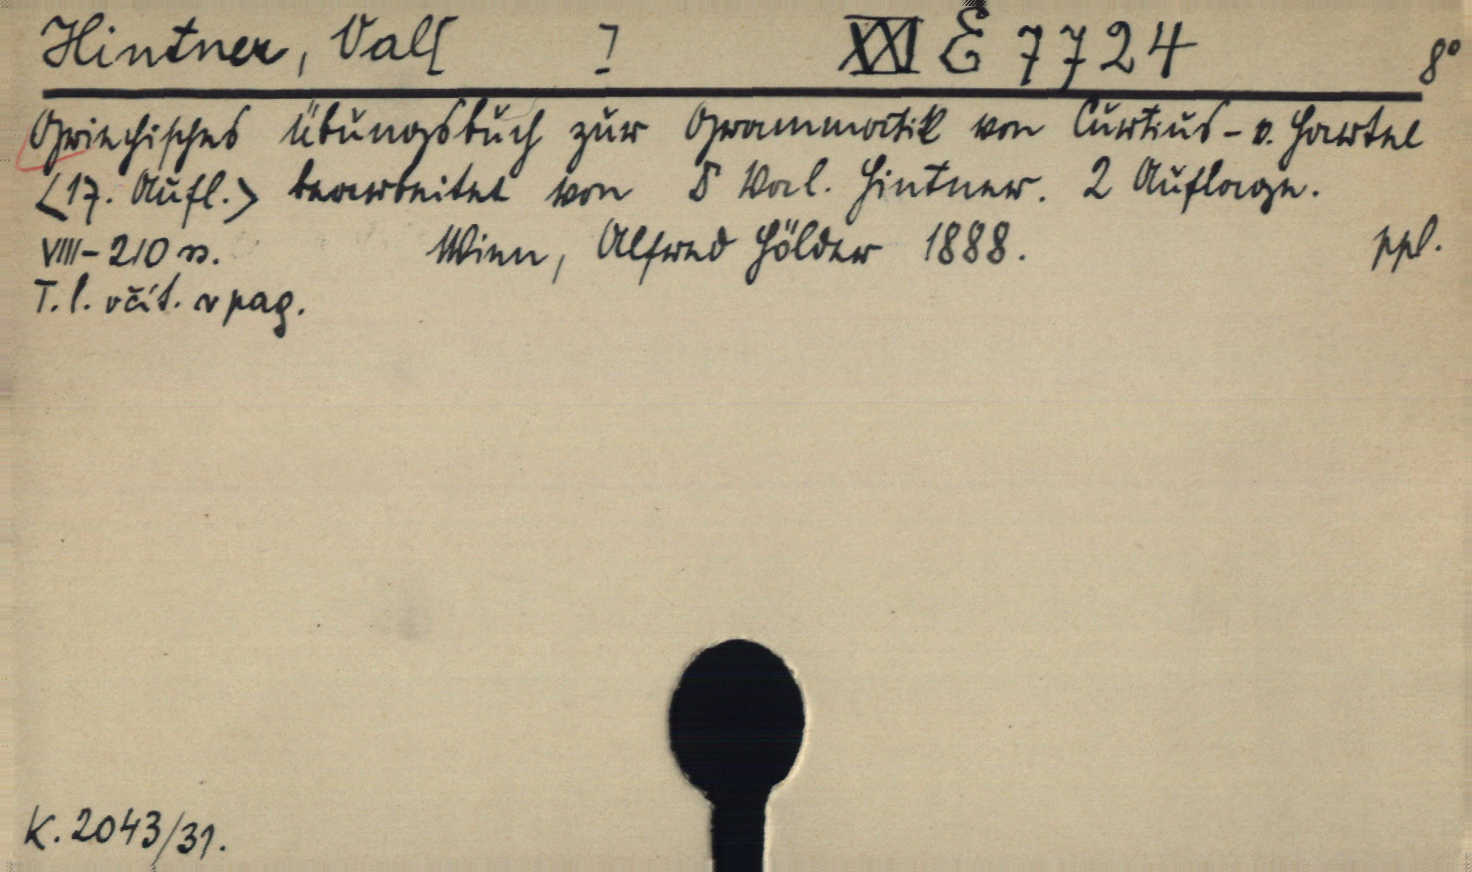 Hintner, Val[ ] XXI E 7724 8°
Griechisches Übungsbuch zur Grammatik von Curtius - v. Hartel
<17. Aufl.> bearbeitet von D Val. Hintner. 2 Auflage.
VIII - 210 s. Wien, Alfred Hölder 1888. ppl.
T. l. včít. v pag.
K. 2043/31.